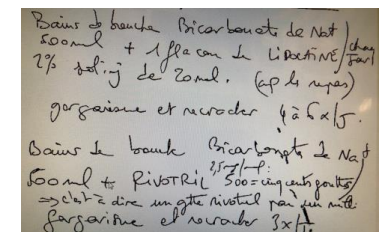 Bains de bouche Bicarbonate de Na+
500ml + 1 flacon de LIDOCAINE / chaq
2% de 20ml. (ap le repas)
gargarisme et recracher 4 à 6x/J.
Bains de bouche Bicarbonate de Na+
2,5mg/ml:
500ml + RIVOTRIL 500 = cinq cents gouttes
=> c'est à dire un gtte rivotril par un mill.
Gargarisme et recracher 3x/J.